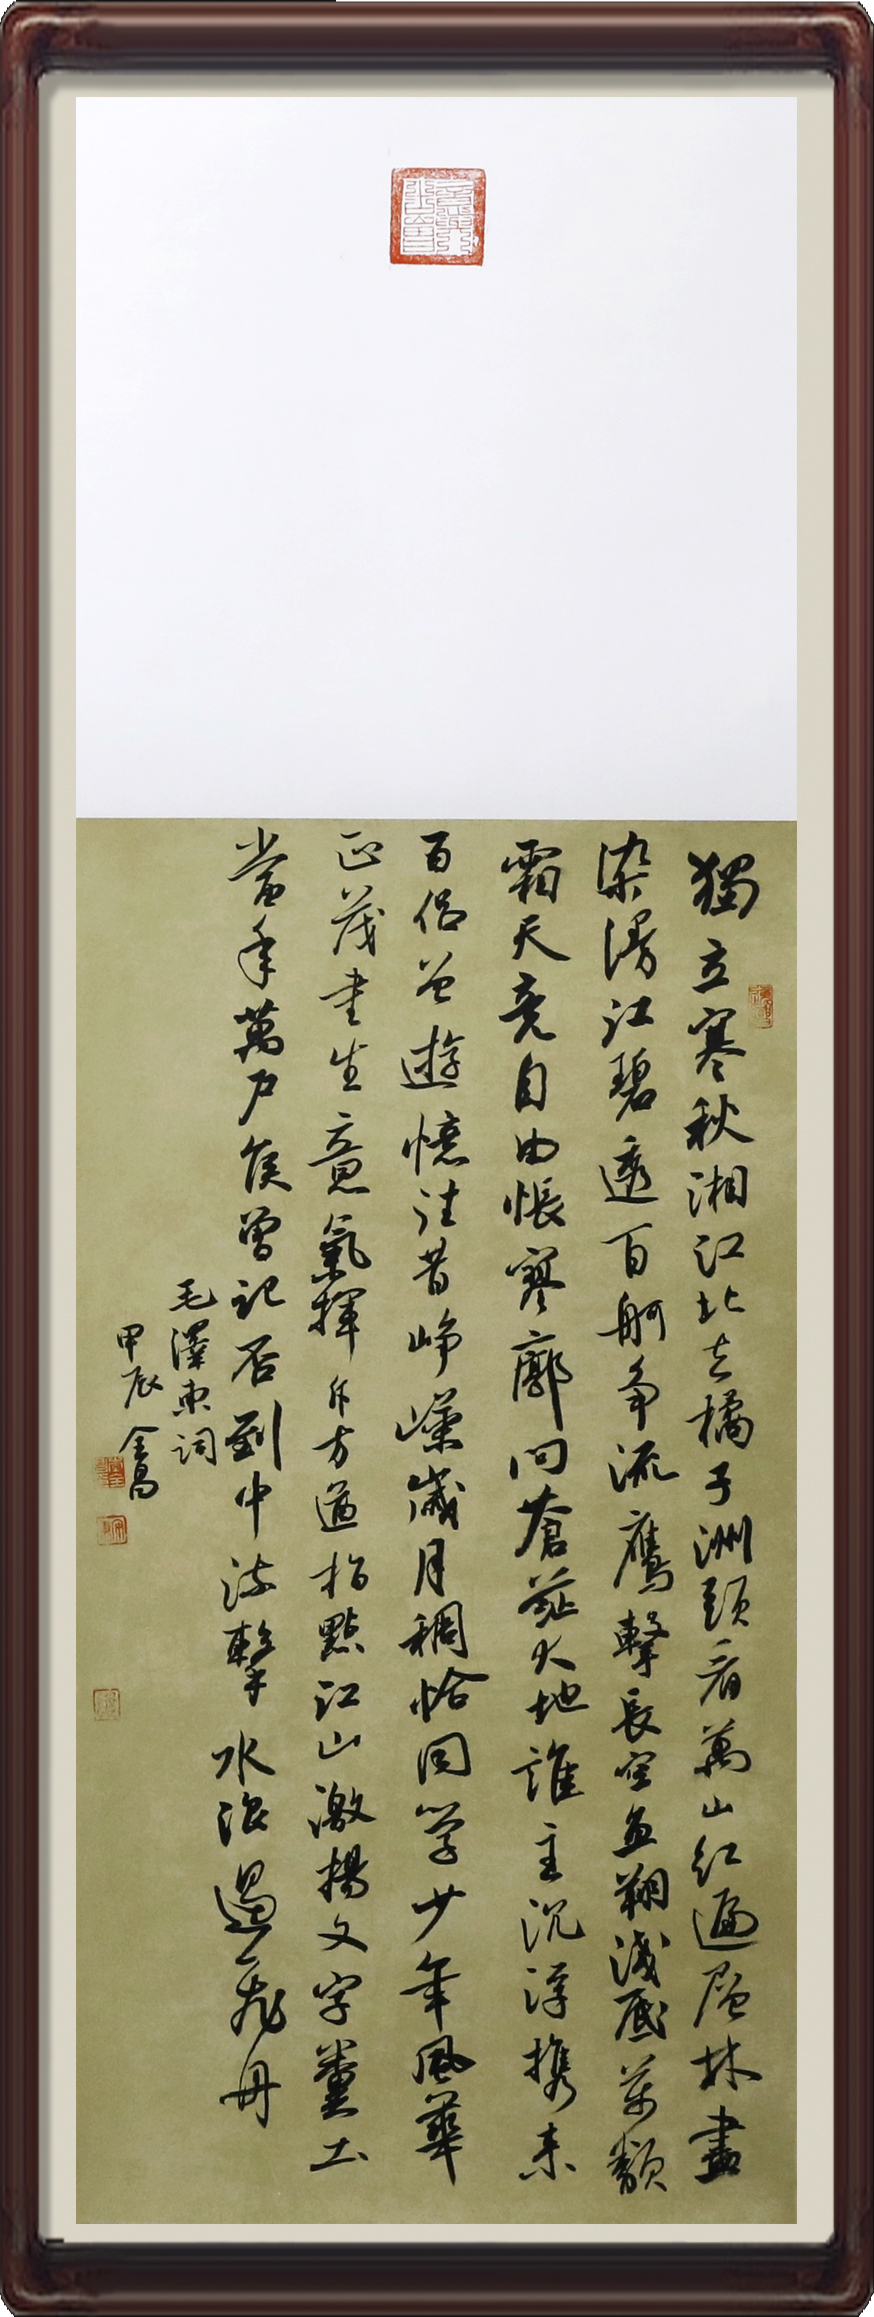 獨立寒秋湘江北去橘子洲頭看萬山紅遍層林盡
染漫江碧透百舸爭流鷹擊長空魚翔淺底萬類
霜天竞自由悵寥廓问蒼茫大地誰主沉浮携来
百侣曾遊憶往昔崢嶸歲月稠恰同学少年風華
正茂书生意氣揮斥方遒指點江山激揚文字糞土
当年萬户侯曾记否到中流擊水浪遏飛舟
毛澤东词
甲辰全昌